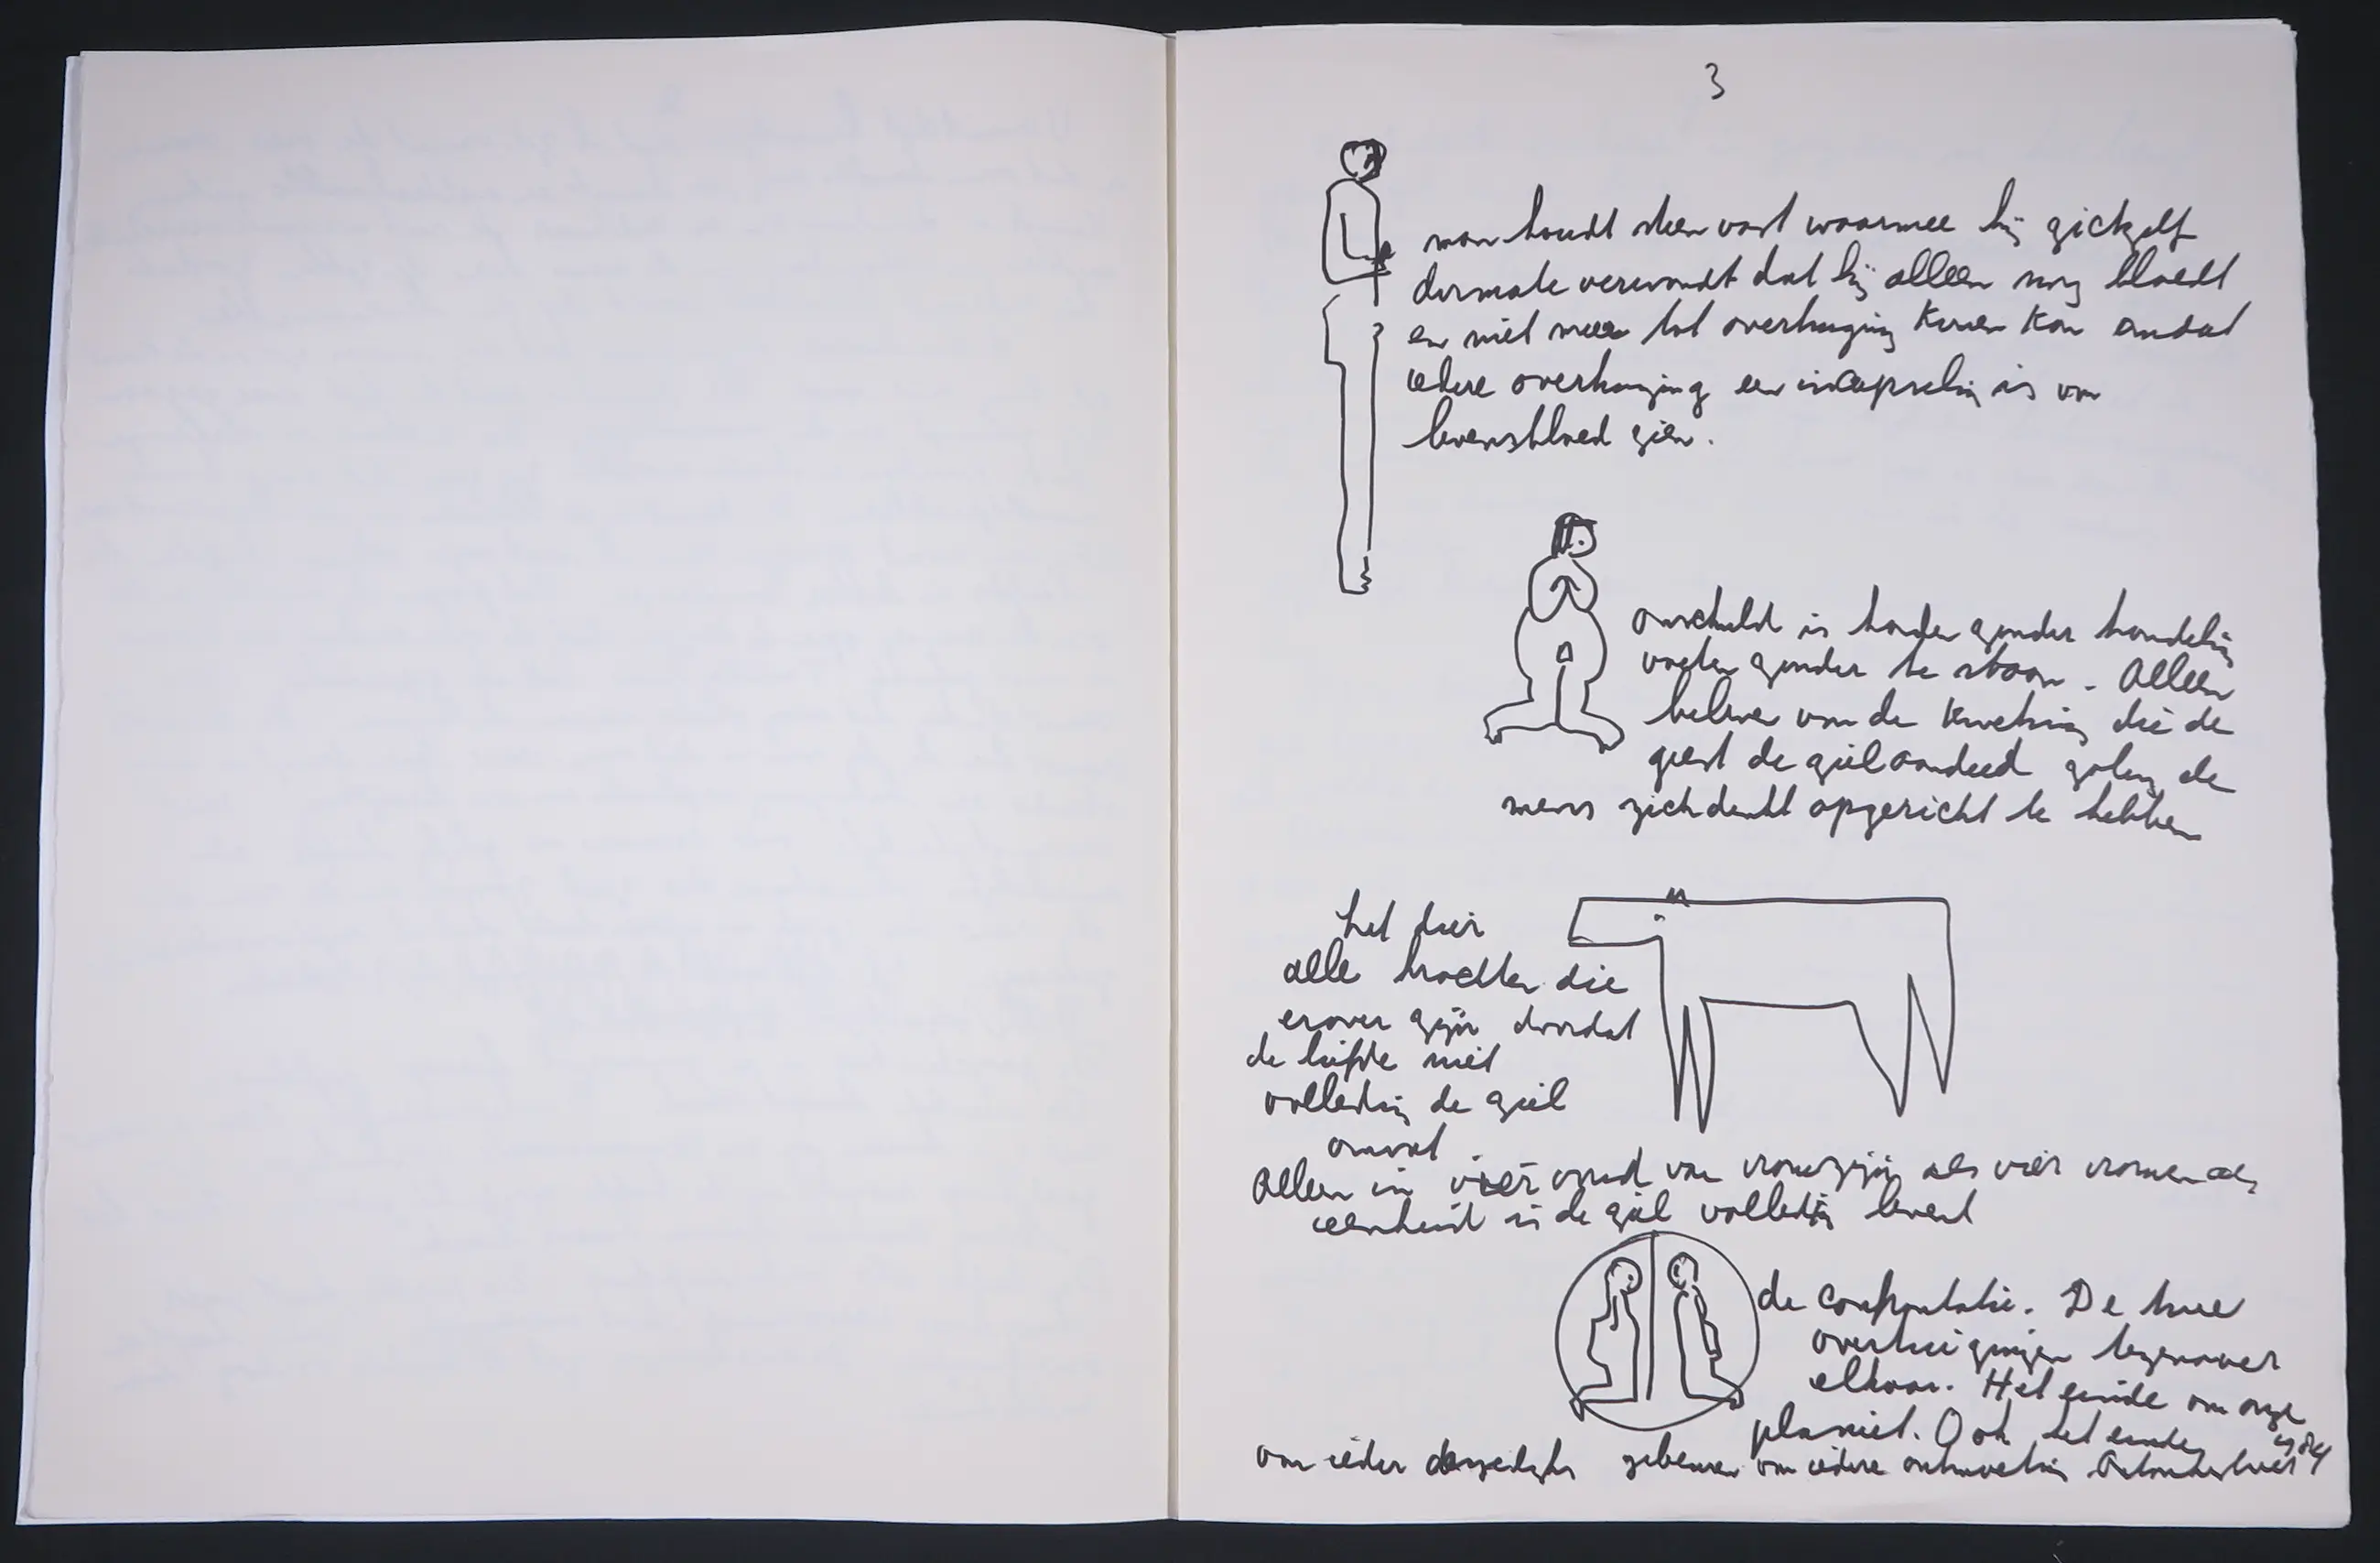 3
man houdt steen vast waarmee hij zichzelf
dermate verwondt dat hij alleen nog bloedt
en niet meer tot overtuiging komen kan omdat
iedere overtuiging een incapseling is van
levensbloed zien.
onschuld is handen zonder handeling
voeten zonder te staan. Alleen
beleven van de kwetsing die de
geest de ziel aandeed zolang de
mens zich denkt opgericht te hebben
het dier
alle krachten die
erover zijn doordat
de liefde niet
volledig de ziel
omvat
Alleen in vier van vrouwzijn als vier vrouwen als
eenheid is de ziel volledig levend
de confrontatie. De twee
overtuigingen tegenover
elkaar. Het einde van onze
planeet. Ook het einde
van ieder gebeuren van iedere